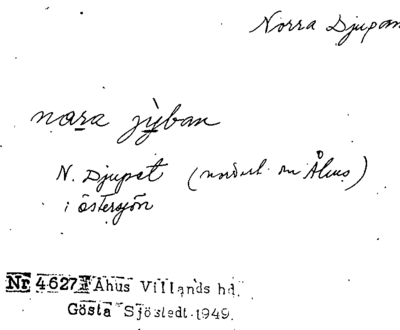 Norra Djupan
nara jỳban
N. Djupet (nordost om Åhus)
i Östersjön
Nr 4627 Åhus Villands hd.
Gösta Sjöstedt 1949.